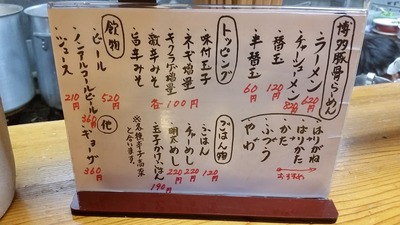 博多豚骨らーめん
ラーメン 620円
チャーシューメン 820円
替玉 120円
半替玉 60円
はりがね
ばりかた
かた
ふつう
やわ
おすすめ
トッピング
味付玉子
ネギ増量
キクラゲ増量
激辛みそ
旨辛みそ
各100円
ごはん物
ごはん 120円
チャーめし 220円
明太めし 220円
玉子かけごはん 190円
飲物
ビール 520円
ノンアルコールビール 360円
ジュース 210円
他
ギョーザ 360円